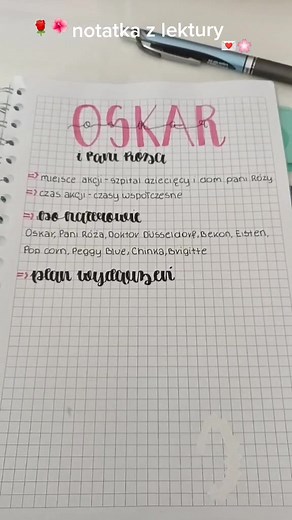 notatka z lektury
OSKAR
i Pani Róża
=> miejsce akcji - szpital dziecięcy i dom pani Róży
=> czas akcji - czasy współczesne
=> bohaterowie
Oskar, Pani Róża, Doktor Düsseldorf, Bekon, Einstein,
Pop corn, Peggy Blue, Chinka, Brigitte
=> plan wydarzeń